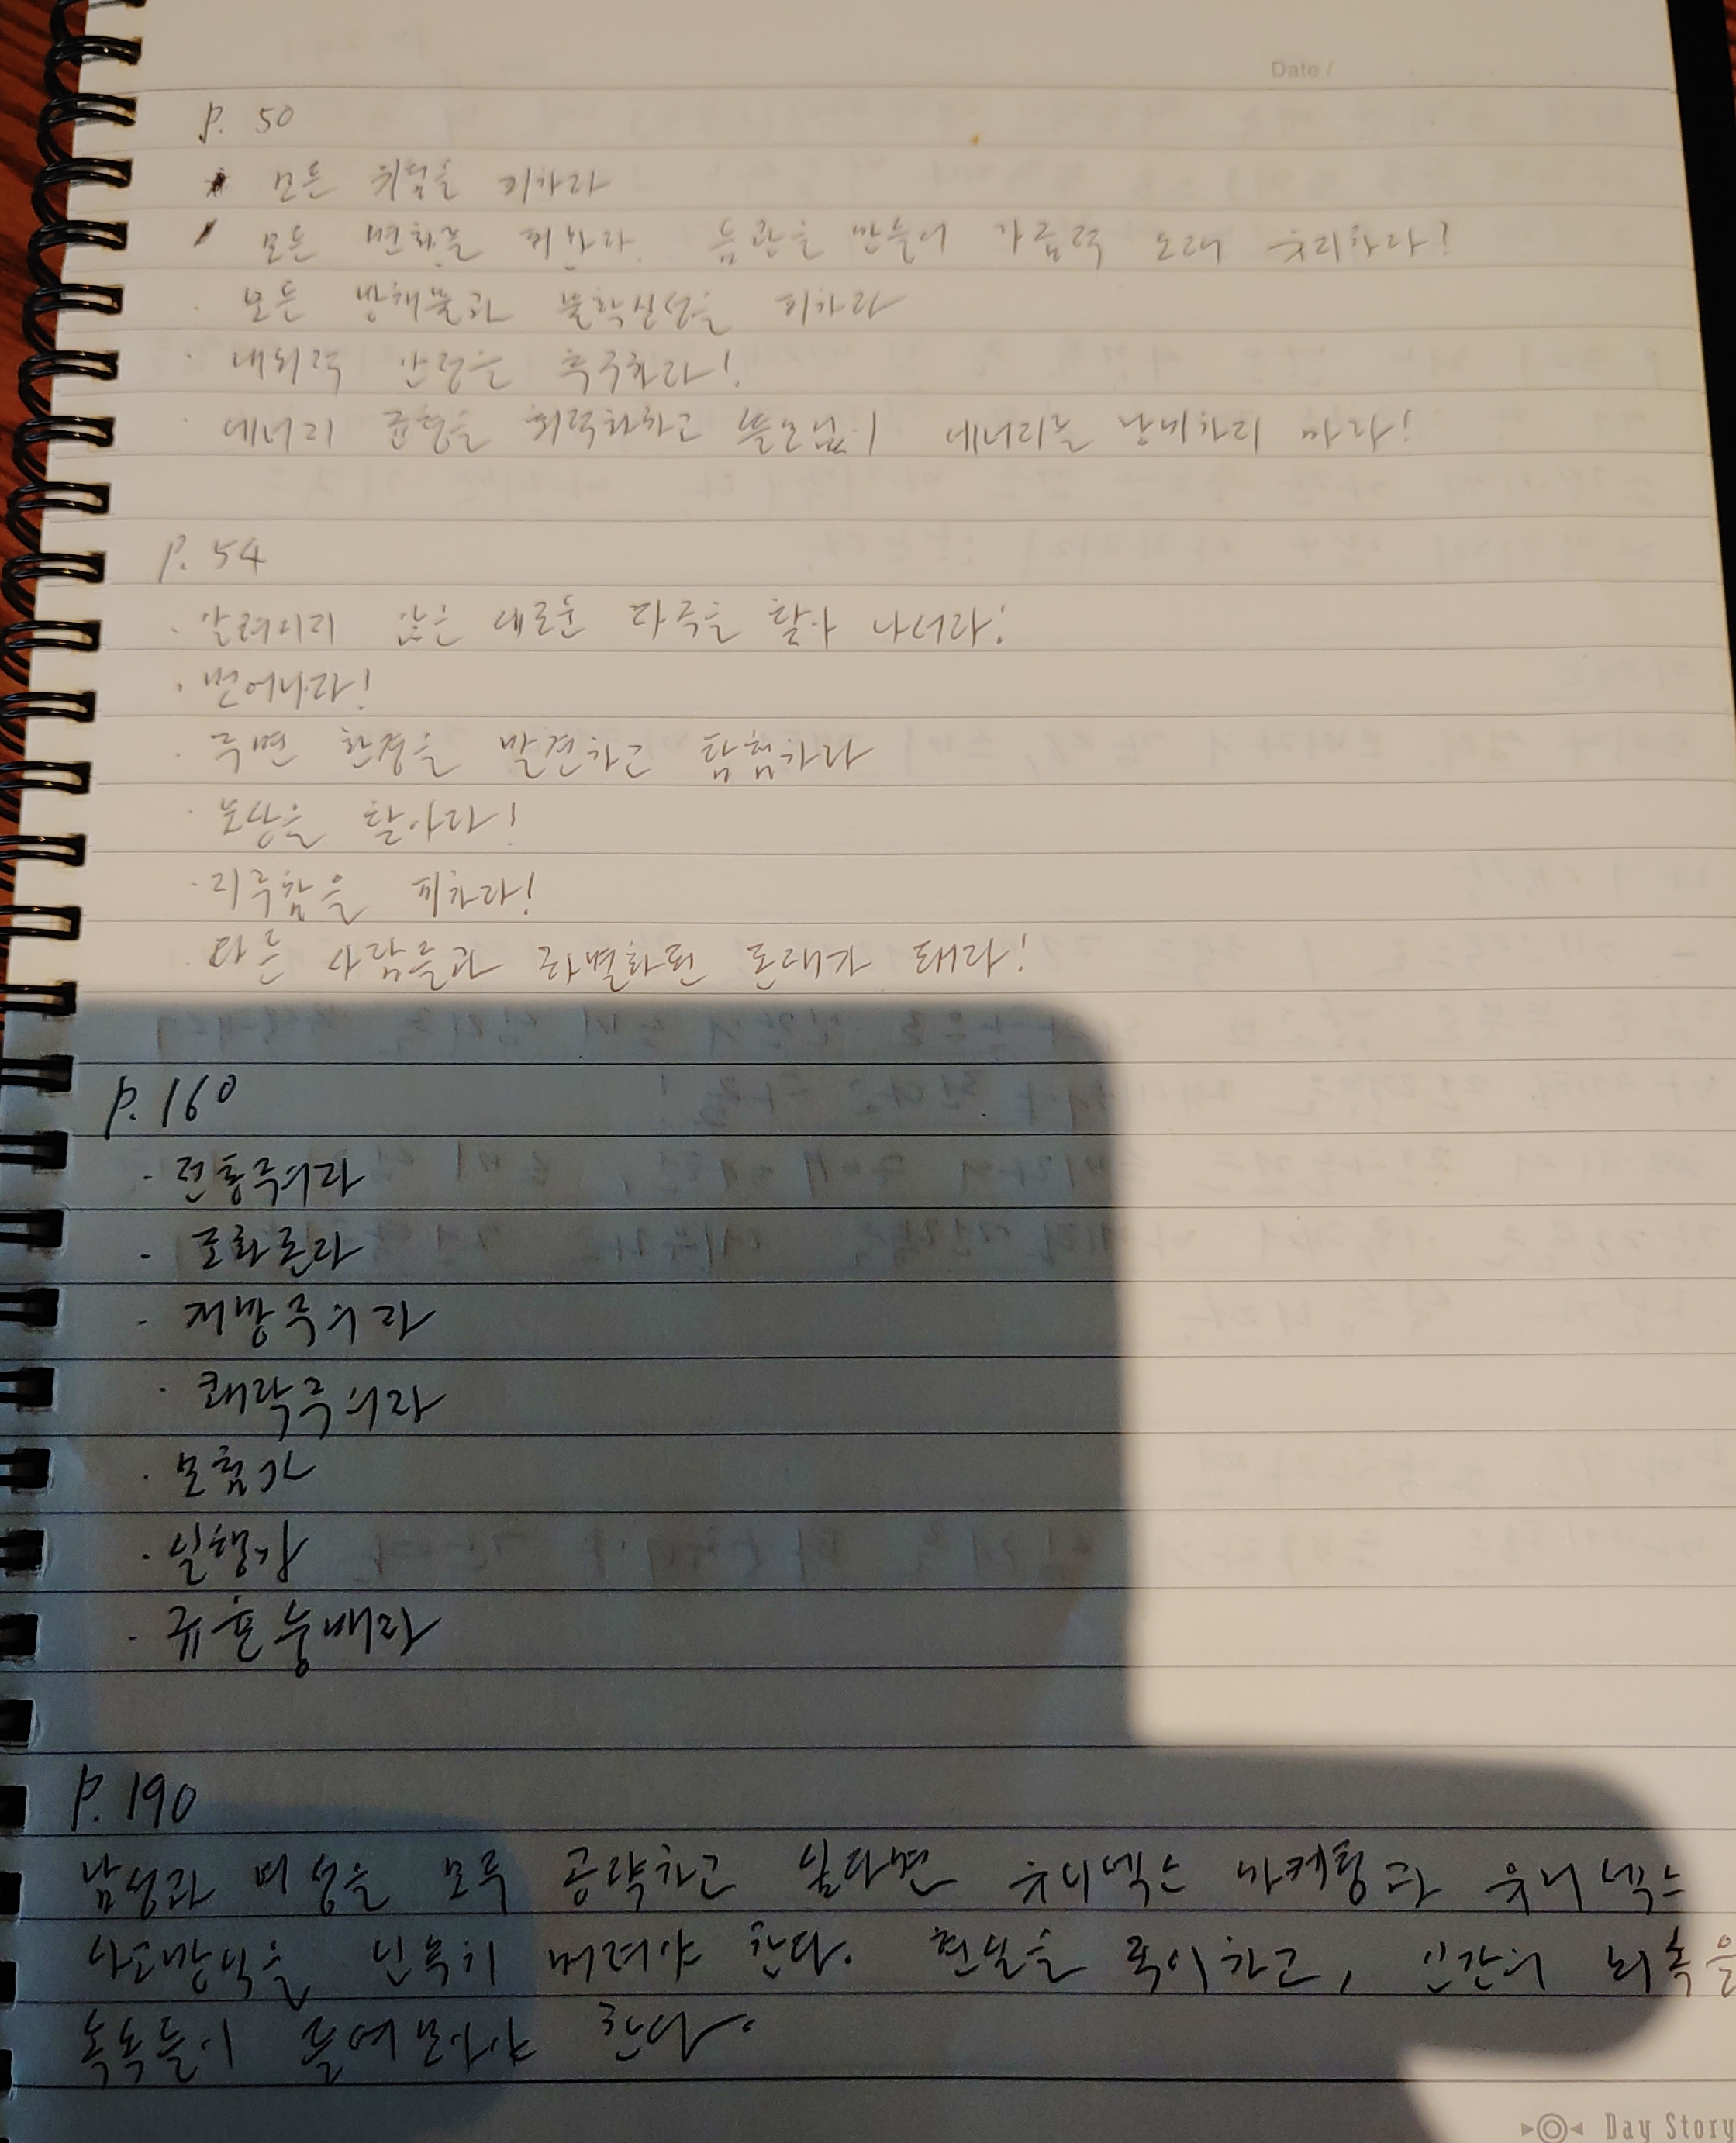 Date /
p. 50
* 모든 위험을 피하라
모든 변화를 피하라. 습관을 만들어 가급적 오래 유지하라!
· 모든 방해물과 불확실성을 피하라
· 내외적 안정을 추구하라!
· 에너지 균형을 최적화하고 쓸모없이 에너지를 낭비하지 마라!
p. 54
· 알려지지 않은 새로운 자극을 찾아 나서라!
· 벗어나라!
· 주변 환경을 발견하고 탐험하라
· 보상을 찾아라!
· 지루함을 피하라!
· 다른 사람들과 차별화된 존재가 돼라!
p. 160
· 전통주의자
· 조화론자
· 개방주의자
· 쾌락주의자
· 모험가
· 실행가
· 규율숭배자
p. 190
남성과 여성을 모두 공략하고 싶다면 유니섹스 마케팅과 유니섹스
사고방식을 신속히 버려야 한다. 현실을 직시하고, 인간의 뇌속을
속속들이 들여다봐야 한다.
Day Story